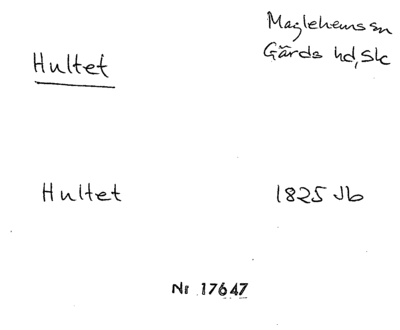 Maglehems sn
Gärds hd, Sk
Hultet
Hultet 1825 Jb
Nr 17647